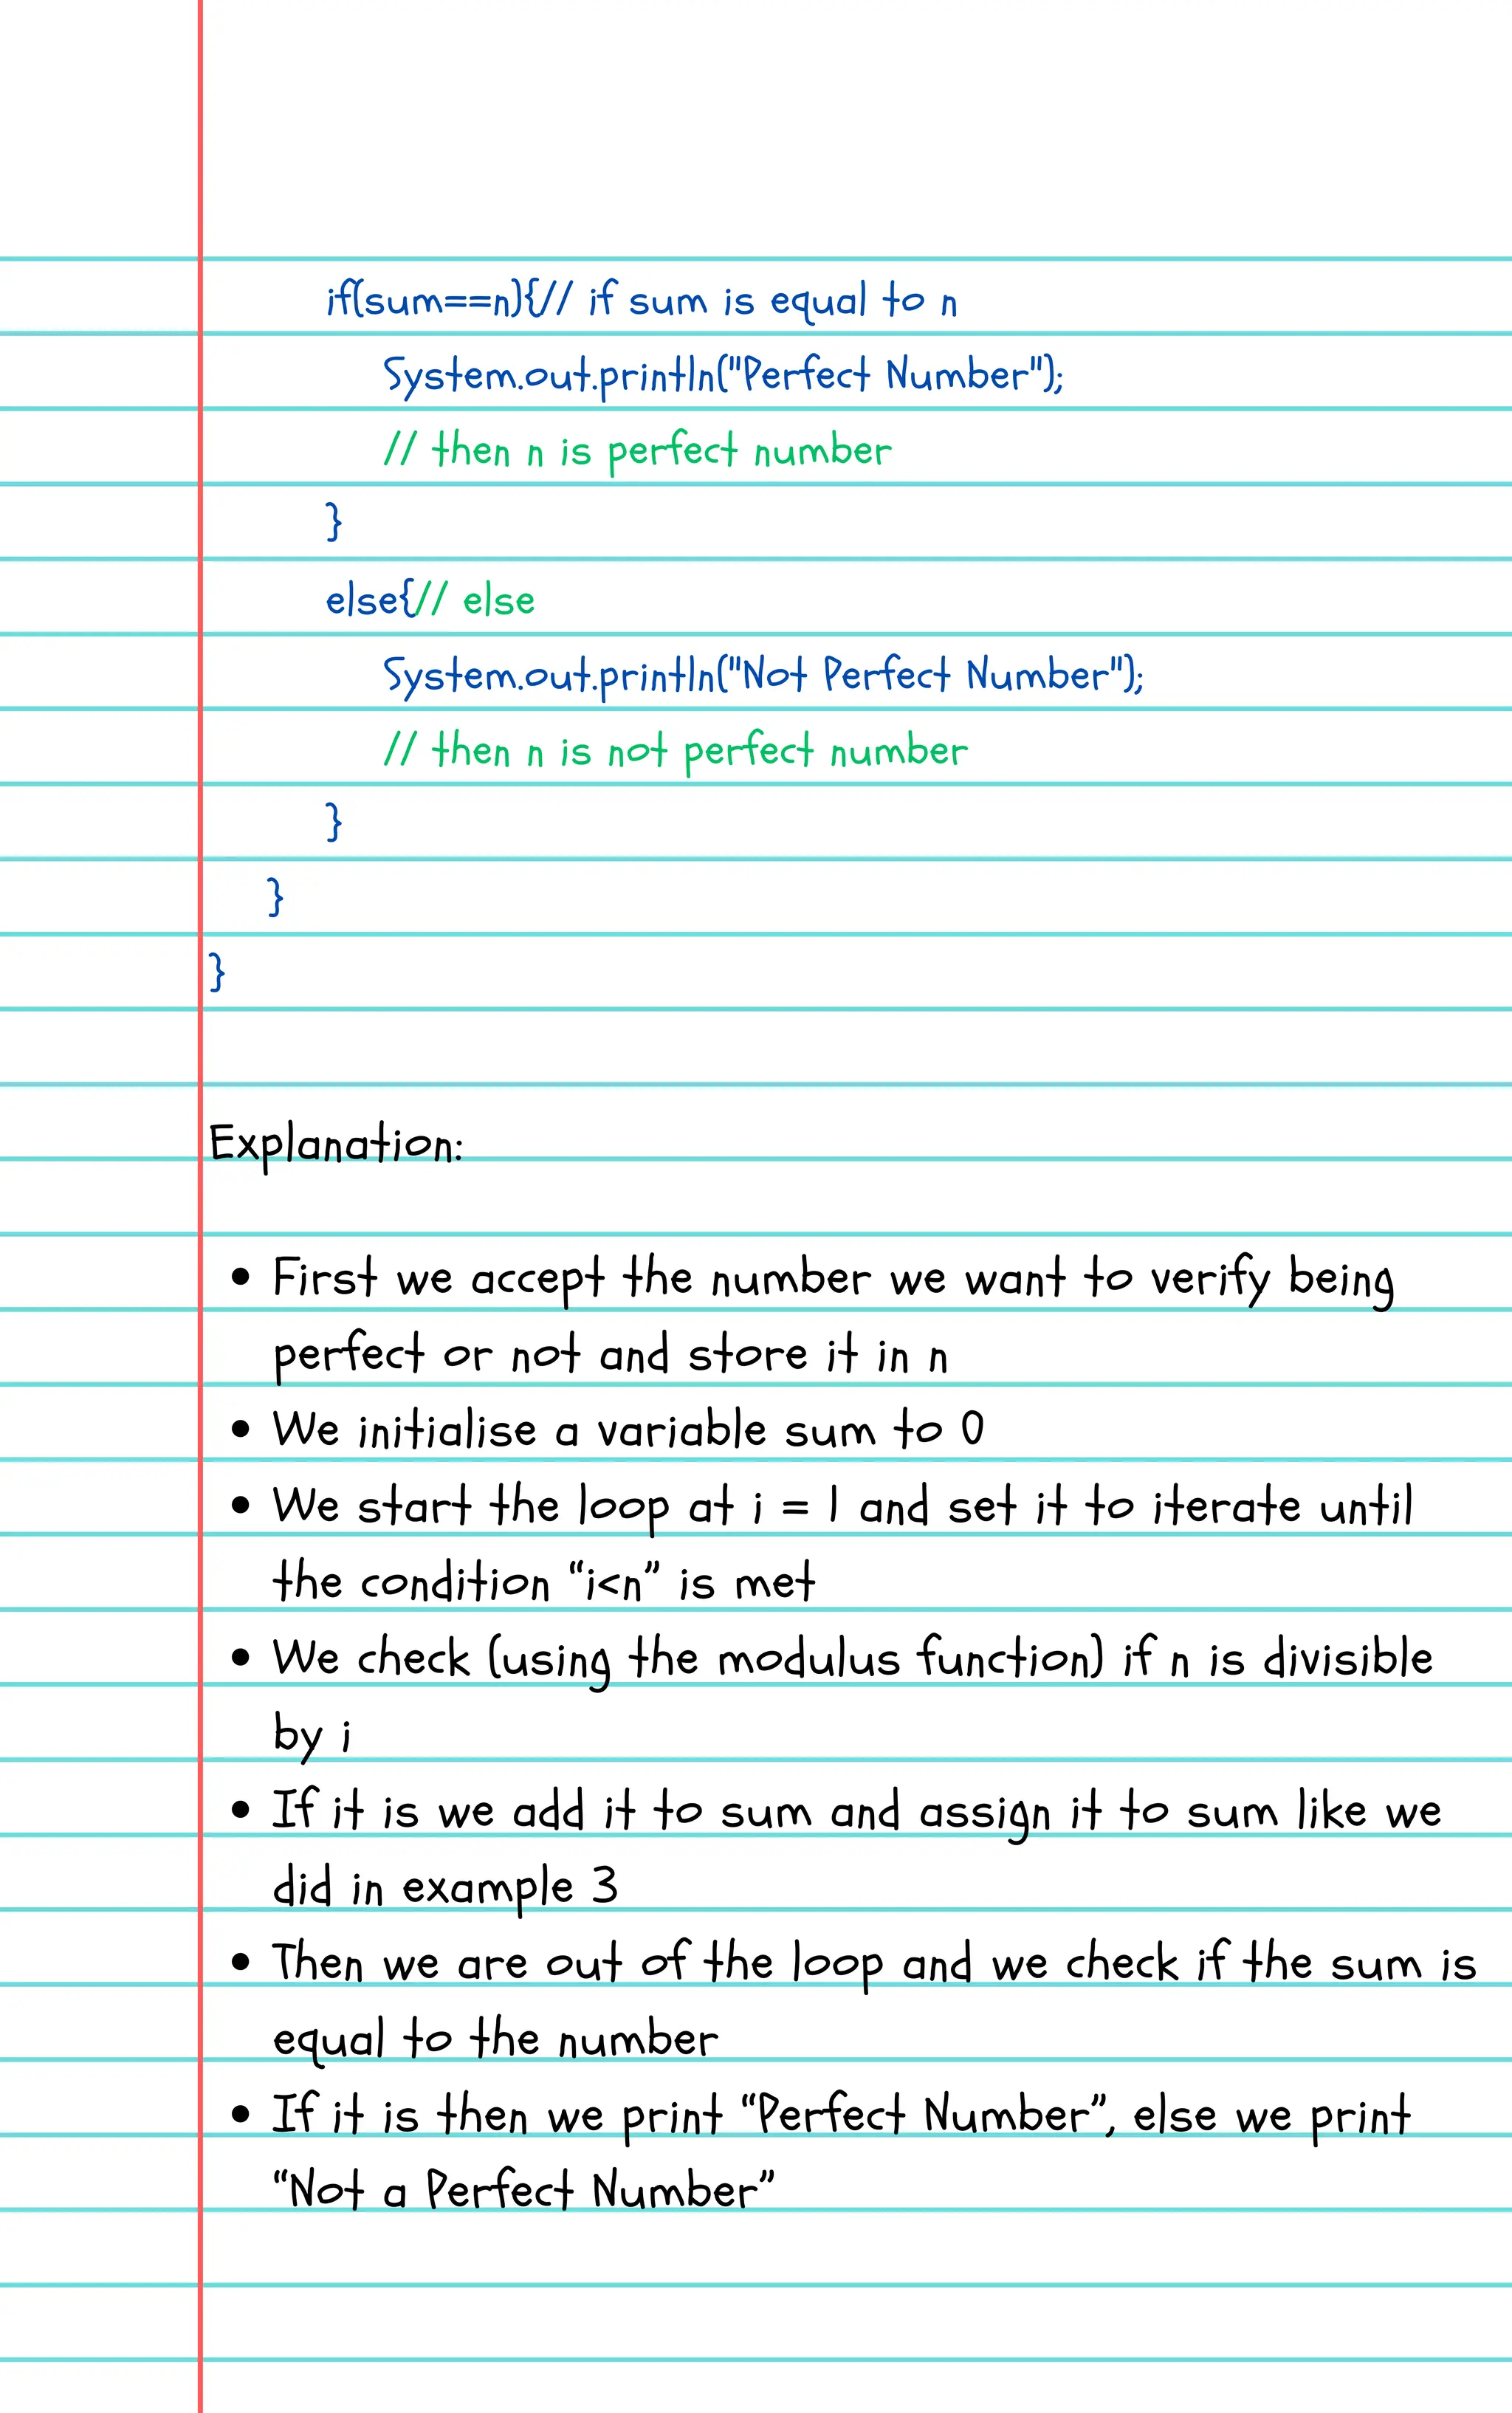 if(sum==n){// if sum is equal to n
System.out.println("Perfect Number");
// then n is perfect number
}
else{// else
System.out.println("Not Perfect Number");
// then n is not perfect number
}
}
}
Explanation:
• First we accept the number we want to verify being
perfect or not and store it in n
• We initialise a variable sum to 0
• We start the loop at i = 1 and set it to iterate until
the condition “i<n” is met
• We check (using the modulus function) if n is divisible
by i
• If it is we add it to sum and assign it to sum like we
did in example 3
• Then we are out of the loop and we check if the sum is
equal to the number
• If it is then we print “Perfect Number”, else we print
“Not a Perfect Number”